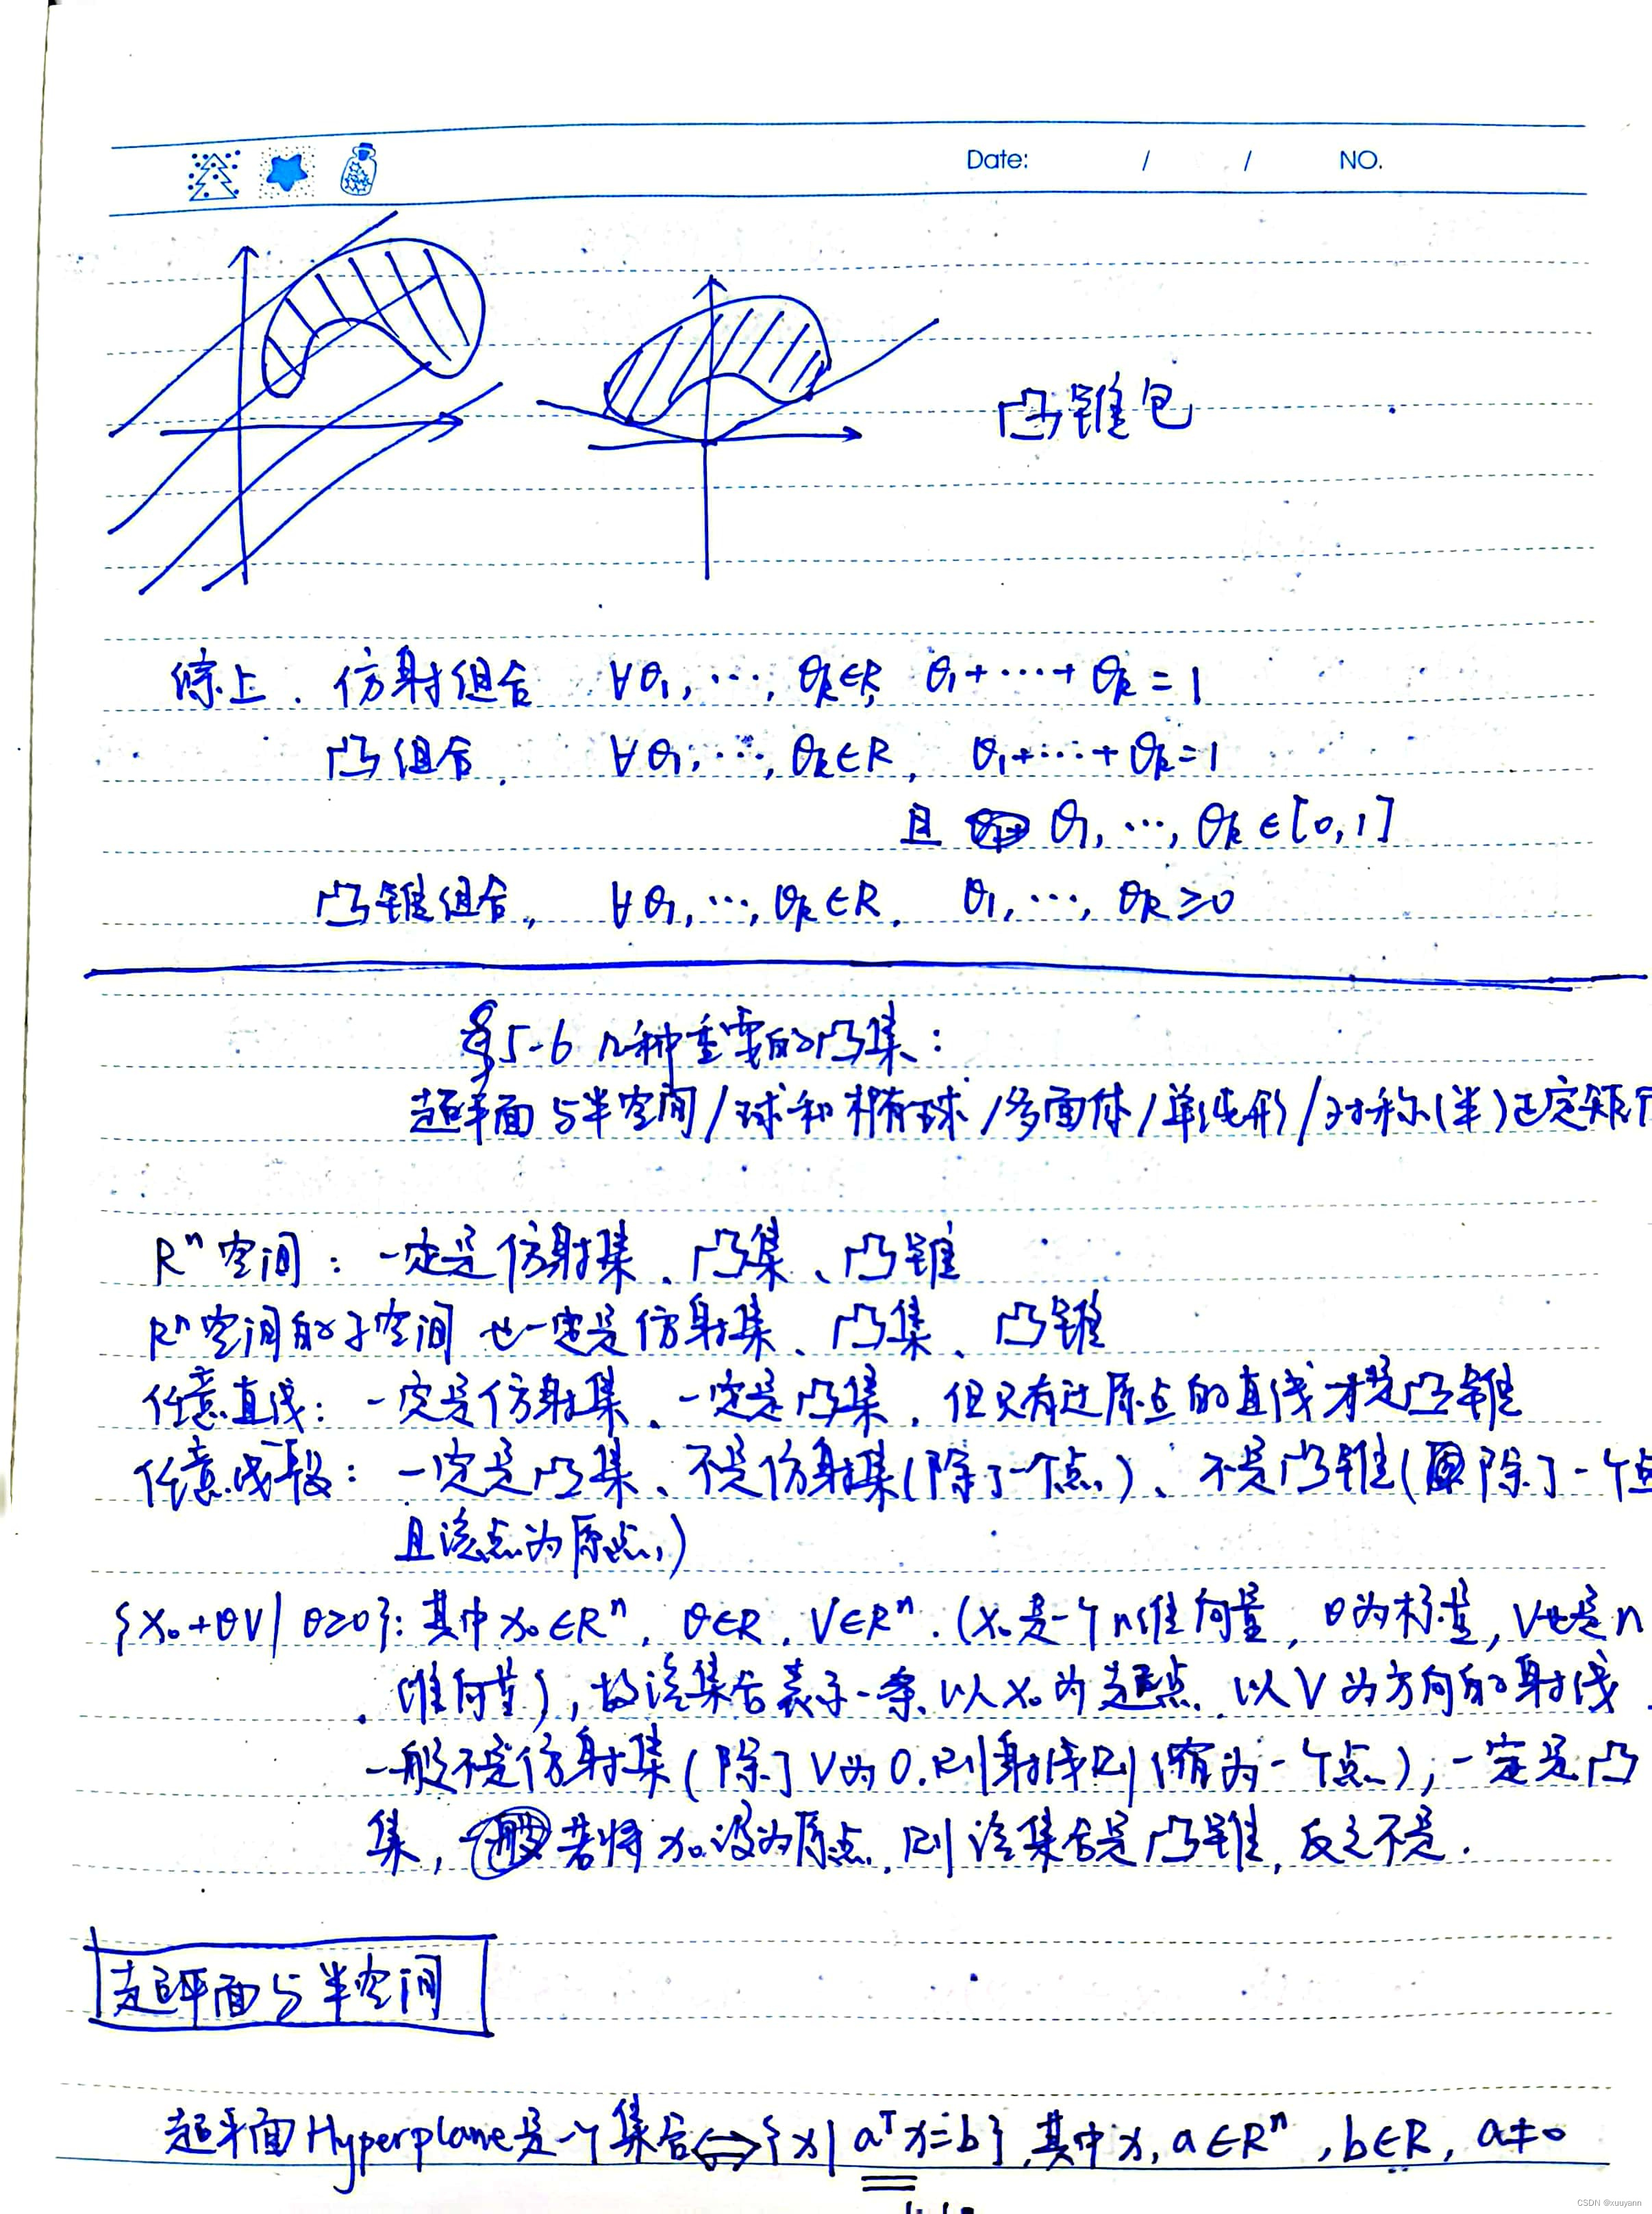 Date: / / NO.
凸锥包
综上. 仿射组合 ∀θ₁, ⋯, θₖ∈R, θ₁+⋯+θₖ=1
凸组合, ∀θ₁, ⋯, θₖ∈R, θ₁+⋯+θₖ=1
且 θ₁, ⋯, θₖ∈[0,1]
凸锥组合, ∀θ₁, ⋯, θₖ∈R, θ₁, ⋯, θₖ≥0
§5-6 几种重要的凸集:
超平面与半空间/球和椭球/多面体/单纯形/对称(半)正定矩
Rⁿ空间: 一定是仿射集、凸集、凸锥
Rⁿ空间的子空间 也一定是仿射集、凸集、凸锥
任意直线: 一定是仿射集、一定是凸集, 但只有过原点的直线才是凸锥
任意线段: 一定是凸集、不是仿射集(除了一个点)、不是凸锥(除了一个点
且该点为原点)
{x₀+θv | θ≥0}: 其中x₀∈Rⁿ, θ∈R, v∈Rⁿ. (x₀是一个n维向量, θ为标量, v也是n
维向量), 故该集合表示一条以x₀为起点, 以v为方向的射线.
一般不是仿射集(除了v为0, 则射线则缩为一个点), 一定是凸
集, 若将x₀设为原点, 则该集合是凸锥, 反之不是.
超平面与半空间
超平面Hyperplane是一个集合⇔{x | aᵀx=b}, 其中x, a∈Rⁿ, b∈R, a≠0
CSDN @xuuyann